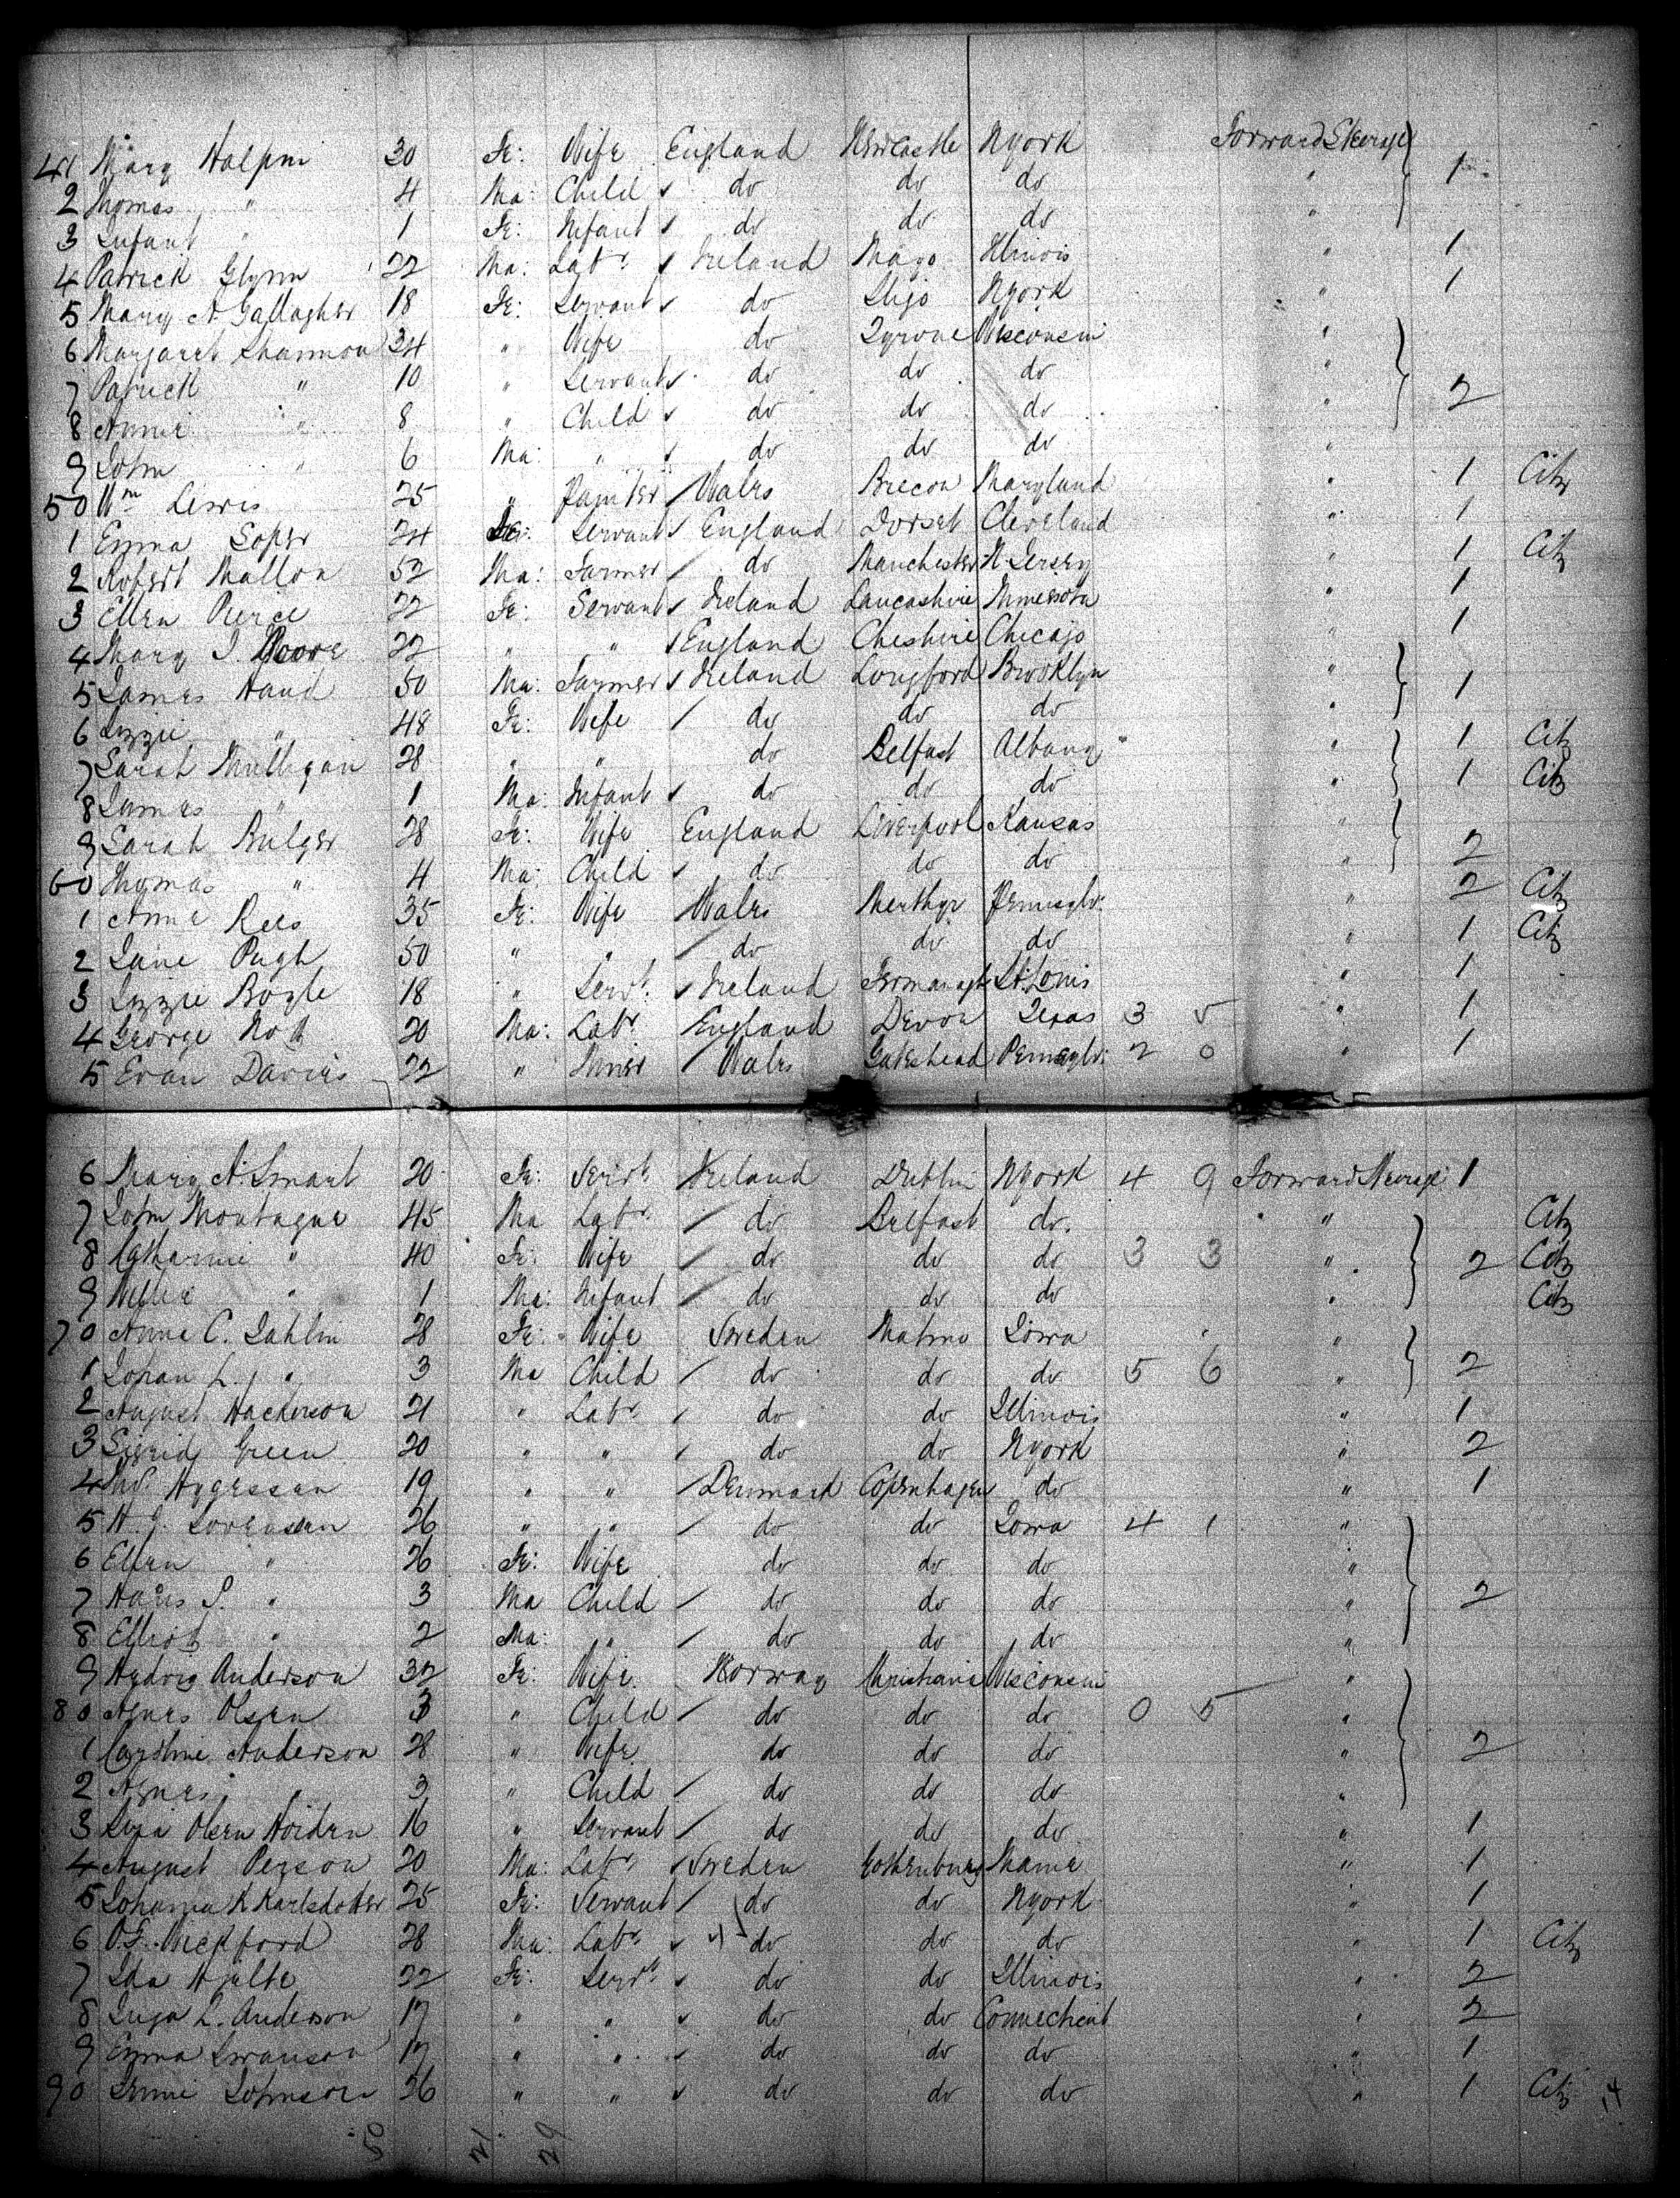 41 Mary Halpin 30 Fe: Wife England Newcastle NYork Forward Steerage 1
2 Thomas " 4 Ma: Child do do do "
3 Infant " 1 Fe: Infant do do do "
4 Patrick Glynn 22 Ma: Labr. Ireland Mayo Illinois " 1
5 Mary A Gallagher 18 Fe: Servant do Sligo NYork " 1
6 Margaret Shannon 34 " Wife do Tyrone Wisconsin "
7 Patrick " 10 " Servant do do do " 2
8 Annie " 8 " Child do do do "
9 John " 6 Ma: " do do do "
50 Wm Lewis 25 " Painter Wales Brecon Maryland " 1 Citz
1 Emma Soper 24 Fe: Servant England Dorset Cleveland " 1
2 Robert Mallon 52 Ma: Farmer do Manchester N Jersey " 1 Citz
3 Ellen Pierce 22 Fe: Servant Ireland Lancashire Minnesota " 1
4 Mary J. Moore 22 " " England Cheshire Chicago " 1
5 James Hand 50 Ma: Farmer Ireland Longford Brooklyn " 1
6 Lizzie " 48 Fe: Wife do do do "
7 Sarah Mulligan 28 " " do Belfast Albany " 1 Citz
8 James " 1 Ma: Infant do do do " 1 Citz
9 Sarah Bulger 28 Fe: Wife England Liverpool Kansas "
60 Thomas " 4 Ma: Child do do do " 2
1 Anne Rees 35 Fe: Wife Wales Merthyr Pennsylv: " 2 Citz
2 Jane Pugh 50 " " do do do " 1 Citz
3 Lizzie Boyle 18 " Servt. Ireland Fermanagh St. Louis " 1
4 George Nott 20 Ma: Labr. England Devon Texas 3 5 " 1
5 Evan Davies 22 " Miner Wales Gateshead Pennsylv: 2 0 " 1
6 Mary A. Smart 20 Fe: Servt. Ireland Dublin NYork 4 9 Forward Steerage 1
7 John Montague 45 Ma Labr. do Belfast do. " Citz
8 Catharine " 40 Fe: Wife do do do 3 3 " 2 Citz
9 Willie " 1 Ma: Infant do do do " Citz
70 Anna C. Dahlin 28 Fe: Wife Sweden Malmo Iowa "
1 Johan L. " 3 Ma Child do do do 5 6 " 2
2 August Hackerson 21 " Labr. do do Illinois " 1
3 Sigrid Green 20 " " do do NYork " 2
4 19 " " Denmark Copenhagen do " 1
5 H. J. Sorensen 26 " " do do Iowa 4 1 "
6 Ellen " 26 Fe: Wife do do do "
7 Hans S. " 3 Ma Child do do do " 2
8 Elliot " 2 Ma: " do do do "
9 Hedvig Anderson 32 Fe: Wife. Norway Christiania Wisconsin "
80 Agnes Olsen 3 " Child do do do 0 5 "
1 Caroline Anderson 28 " Wife do do do " 2
2 Agnes " 3 " Child do do do "
3 Olsen Hoiden 16 " Servant do do do " 1
4 August Person 20 Ma: Labr. Sweden Gothenburg Maine " 1
5 Johanna K Karlsdotter 25 Fe: Servant do do NYork " 1
6 O.F. Wickford 28 Ma: Labr. do do do " 1 Citz
7 Ida Hjulte 22 Fe: Servt. do do Illinois " 2
8 Inga L. Anderson 17 " " do do Connecticut " 2
9 Emma Swanson 17 " " do do do " 1
90 Johnson 26 " " do do do " 1 Citz 14
5 21 29